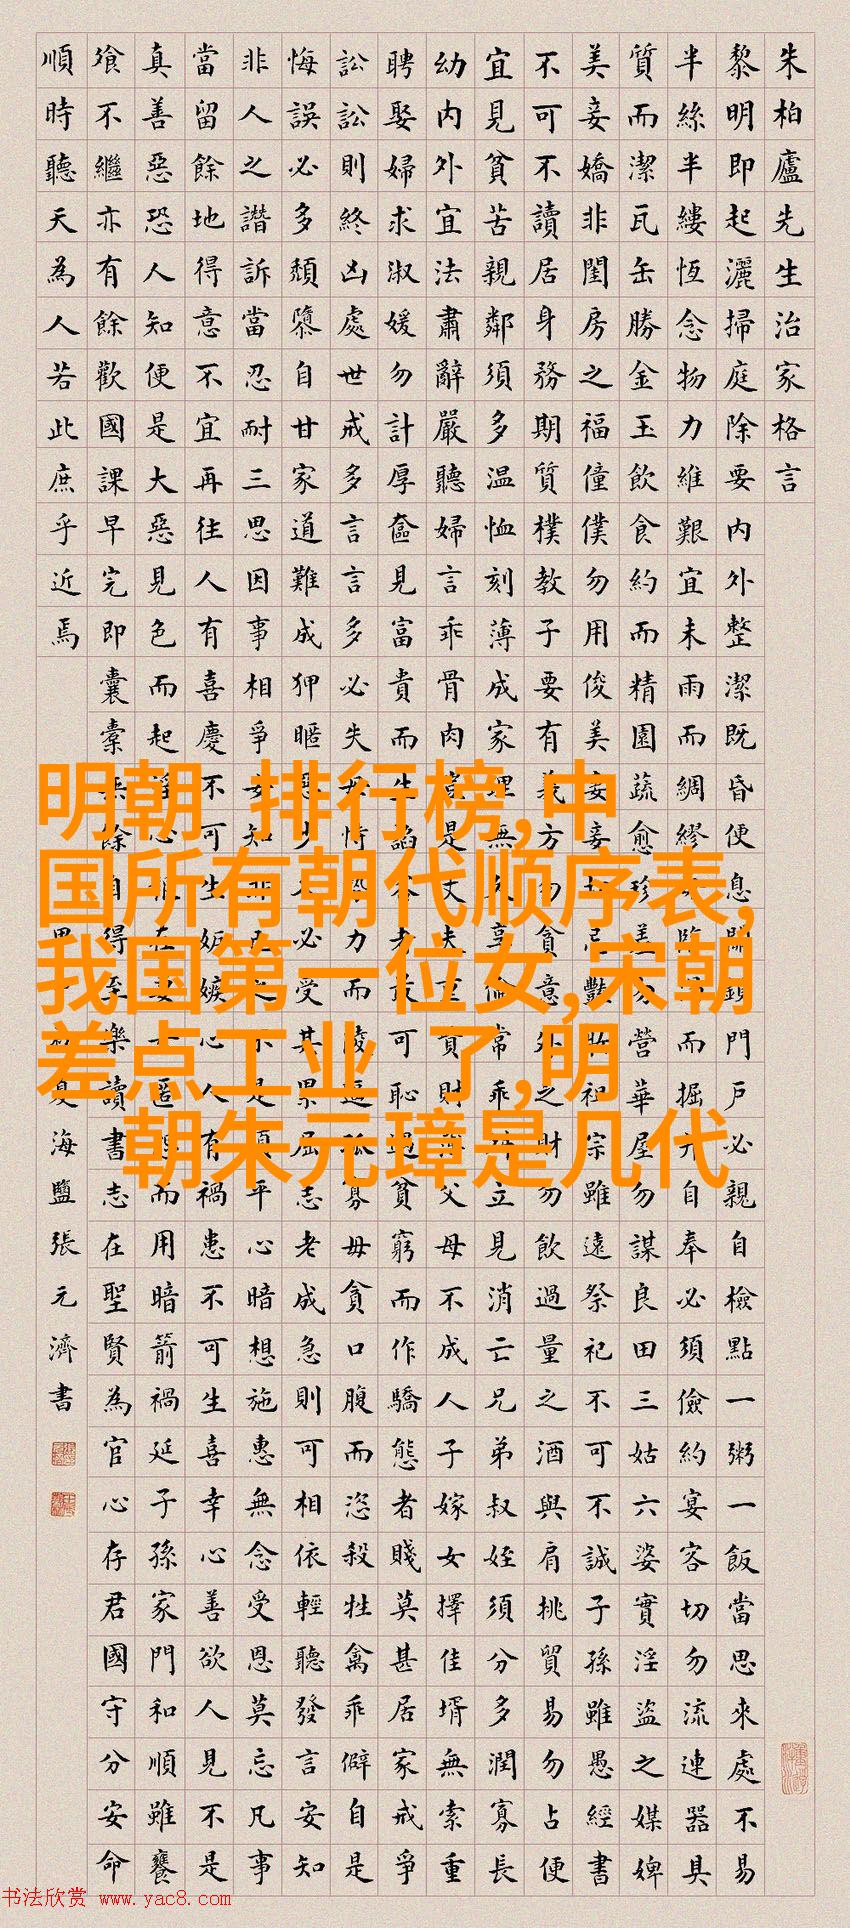 朱柏廬先生治家格言
黎明即起灑掃庭除要內外整潔既昏便息關鎖門戶必親自檢點一粥一飯當思來處不易
半絲半縷恆念物力維艱宜未雨而綢繆臨而掘井自奉必須儉約宴客切勿流連器具
質而潔瓦缶勝金玉飲食約而精園蔬愈珍羞勿營華屋勿謀良田三姑六婆實淫盜之媒婢
美妾嬌非閨房之福僮僕勿用俊美妻妾切忌豔妝祖宗雖遠祭祀不可不誠子孫雖愚經書
不可不讀居身務期質樸教子要有義方勿貪意外之財勿飲過量之酒與肩挑貿易勿占便
宜見貧苦親鄰須多温恤刻薄成家理無久享倫常乖舛立見消亡兄弟叔姪須分多潤寡長
幼內外宜法肅辭嚴聽婦言乖骨肉豈是丈夫重貲財薄父母不成人子嫁女擇佳壻無索重
聘娶婦求淑媛勿計厚奩見富貴而生諂容者最可恥遇貧窮而作驕態者賤莫甚居家戒爭
訟訟則終凶處世戒多言言多必失毋恃勢力而凌逼孤寡毋貪口腹而恣殺牲禽乖僻自是
悔誤必多頹隳自甘家道難成狎暱惡少久必受其累屈志老成急則可相依輕聽發言安知
非人之譖訴當忍耐三思因事相爭安知非我之不是須平心暗想施惠無念受恩莫忘凡事
當留餘地得意不宜再往人有喜慶不可生妒嫉心人有禍患不可生喜幸心善欲人見不是
真善惡恐人知便是大惡見色而起淫心報在妻女匿怨而用暗箭禍延子孫家門和順雖饔
飧不繼亦有餘歡國課早完即囊橐無餘自得至樂讀書志在聖賢為官心存君國守分安命
順時聽天為人若此庶乎近焉
夏海鹽張元濟書
明朝 排行榜,中
国所有朝代顺序表,
我国第一位女,宋朝
差点工业 了,明
朝朱元璋是几代
书法欣赏 www.yac8.com